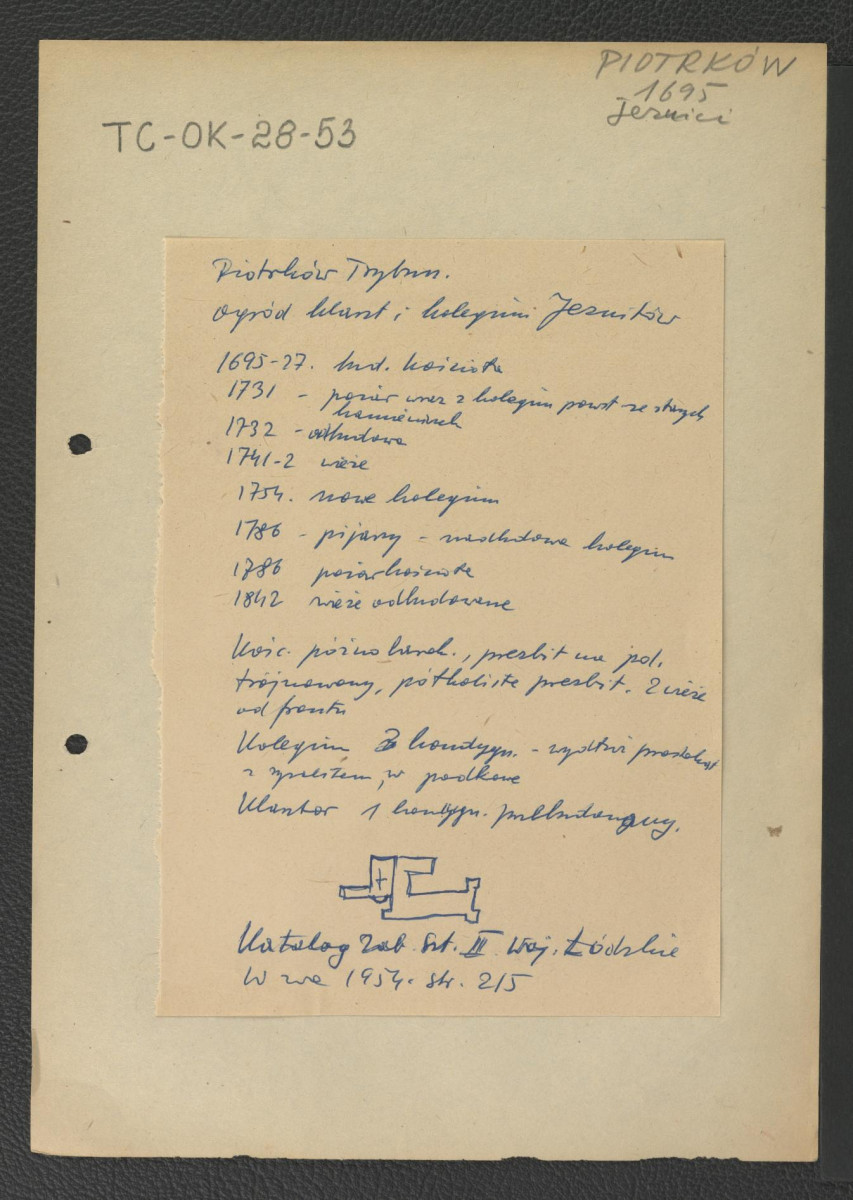 PIOTRKÓW
1695
Jezuici
TC-OK-28-53
Piotrków Trybun.
ogród klaszt i kolegium Jezuitów
1695-27. bud. kościoła
1731 - pożar wraz z kolegium powst ze starych
kamieniczek
1732 - odbudowa
1741-2 wieże
1754. nowe kolegium
1786 - pijarzy - nadbudowa kolegium
1786 pożar kościoła
1842 wieże odbudowane
Kośc. późnobarok., prezbit na pd.
trójnawowy, półkoliste prezbit. 2 wieże
od frontu
Kolegium 3 kondygn. - wydłuż prostokąt
z ryzalitem, w podkowe
Klasztor 1 kondygn. przebudowany.
Katalog Zab. Szt. II Woj. Łódzkie
W wa 1954. str. 215